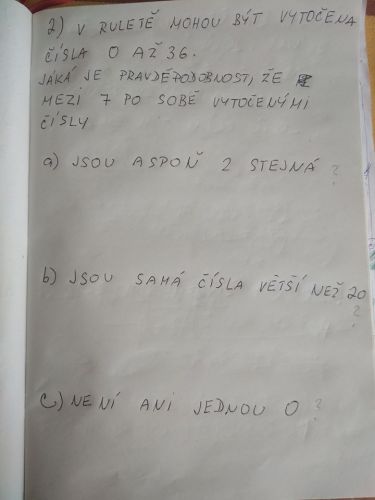 2) V RULETĚ MOHOU BÝT VYTOČENA
ČÍSLA 0 AŽ 36.
JAKÁ JE PRAVDĚPODOBNOST, ŽE
MEZI 7 PO SOBĚ VYTOČENÝMI
ČÍSLY
a) JSOU ASPOŇ 2 STEJNÁ ?
b) JSOU SAMÁ ČÍSLA VĚTŠÍ NEŽ 20
?
c) NENÍ ANI JEDNOU 0 ?